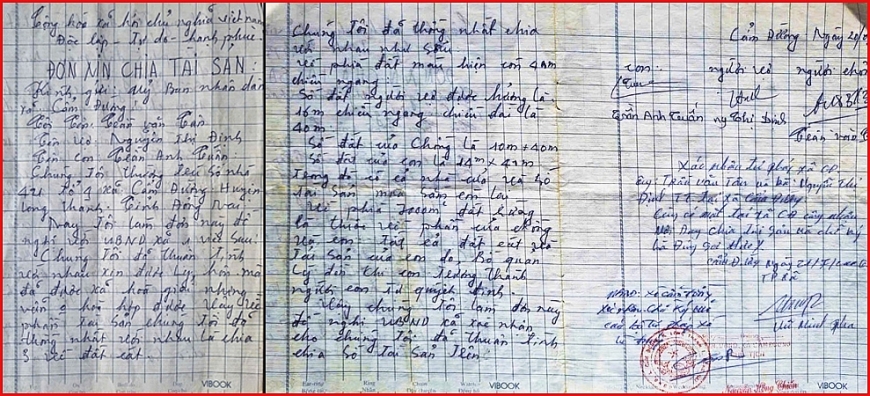 Cộng hóa xã hội chủ nghĩa việt nam
Độc lập - Tự do - hạnh phúc
ĐƠN XIN CHIA TÀI SẢN:
Kính gửi: Uỷ Ban nhân dân
xã Cẩm Đường:
Tôi tên Trần văn Tân
Tên vợ Nguyễn Thị Định
Tên con Trần Anh Tuấn
Chúng Tôi thường trú số nhà
tổ 4 xã Cẩm Đường Huyện
Long Thành. Tỉnh Đồng Nai
Nay Tôi làm đơn này đề
nghị với UBND xã 1 việc sau:
Chúng Tôi đã thuận Tình
với nhau xin được ly hôn mà
đã được xã hoà giải nhưng
vẫn o hoà hợp được vậy về
phần tài sản chúng Tôi đã
thống nhất với nhau là chia
về đất cát.
Chúng Tôi đã thống nhất chia
với nhau như sau
về phía đất màu hiện còn 40m
chiều ngang
Số đất người vợ được hưởng là
16m chiều ngang chiều dài là
40m
Số đất của Chồng là 10m + 40m
Số đất của con là 14m x 42m
Trong đó có cả nhà của và số
Tài Sản mua sắm còn lại
về phía 2000m đất Ruộng
là thuộc về phần của chồng
và con Tất cả đất cát và
Tài Sản của con do Bố quản
lý đến khi con Trưởng Thành
người con Tự quyết định.
Vậy chúng Tôi làm đơn này
đề nghị UBND xã xác nhận
cho chúng Tôi đã thuận Tình
chia số Tài Sản Trên:
VIBOOK
VIBOOK
Cẩm Đường Ngày
con người vợ người chồng
Trần Anh Tuấn Ng Thị Định
Trần văn T
Xác nhận tư pháp xã CĐ
ông Trần văn Tân và bà Nguyễn Thị
Định TT tại xã Cẩm Đường
Cùng có mặt tại xã CĐ công nhận
nội Dung chia tài sản và chữ ký
là Đúng Sự thực
TP xã
UBND. xã cẩm Đường
xác nhận chữ ký
cán bộ Tư pháp xã
là đúng
VIBOOK